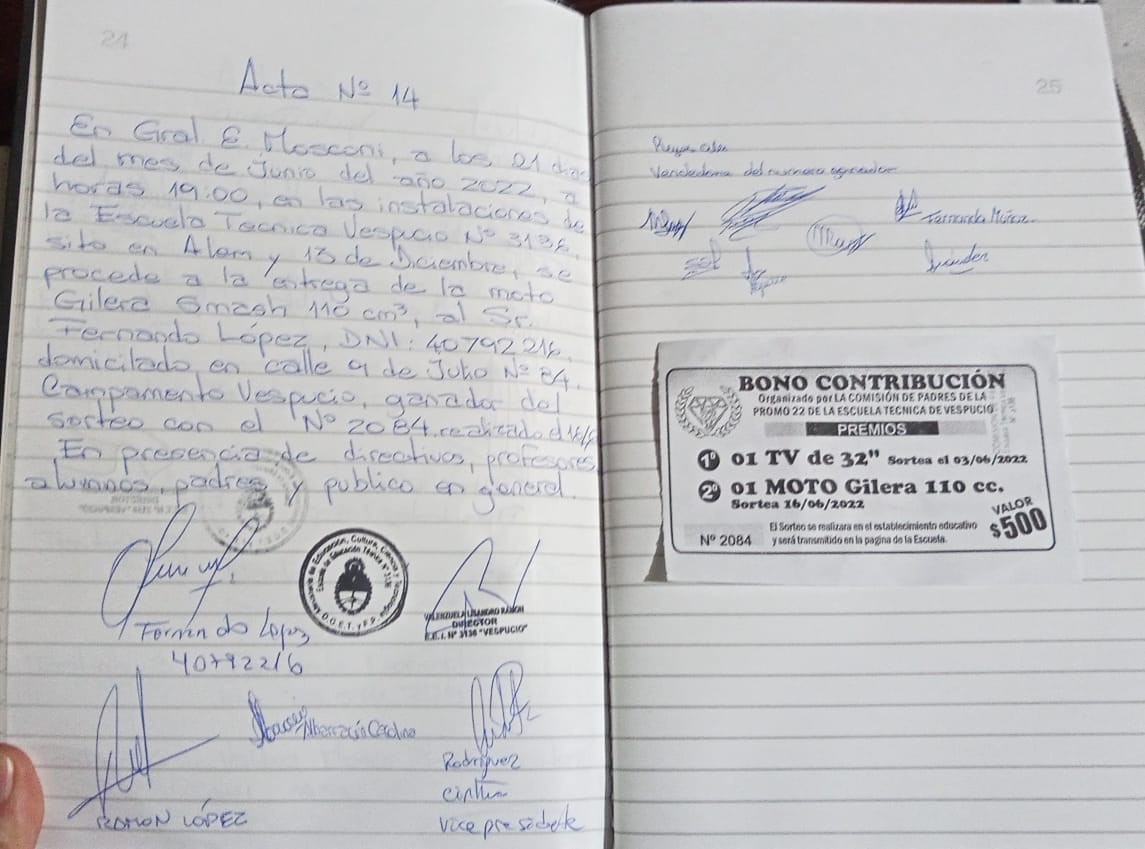 24
Acta Nº 14
En Gral E. Mosconi, a los 21 dias
del mes de Junio del año 2022, a
horas 19:00, en las instalaciones de
la Escuela Tecnica Vespucio Nº 3136,
sito en Alem y 13 de Diciembre, se
procede a la entrega de la moto
Gilera Smash 110 cm³, al Sr.
Fernando López, DNI: 40792216,
domicilado en calle 9 de Julio Nº 84.
Campamento Vespucio, ganador del
sorteo con el Nº 2084, realizado el
En presencia de directivos, profesores,
alumnos, padres y publico en general.
Ministerio de Educación, Cultura, Ciencia y Tecnología
Escuela de Educación Técnica Nº 3136
D.G.E.T. y F.P.
VALENZUELA LISANDRO RAMON
DIRECTOR
E.E.T. Nº 3136 "VESPUCIO"
Fernando Lopez
40792216
Albarracín Carolina
Rodriguez
Cintia
Vice presidente
RAMON LÓPEZ
25
Vendedora del numero ganador
Fernanda
BONO CONTRIBUCIÓN
Organizado por LA COMISIÓN DE PADRES DE LA
PROMO 22 DE LA ESCUELA TECNICA DE VESPUCIO
PREMIOS
1º 01 TV de 32" Sortea el 03/06/2022
2º 01 MOTO Gilera 110 cc.
Sortea 16/06/2022
VALOR
$500
El Sorteo se realizara en el establecimiento educativo
Nº 2084 y será transmitido en la pagina de la Escuela.